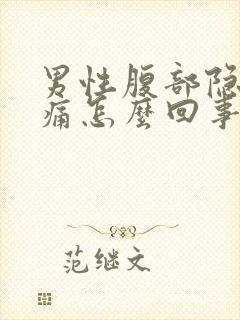 男性腹部隐
痛怎麼回事
范继文